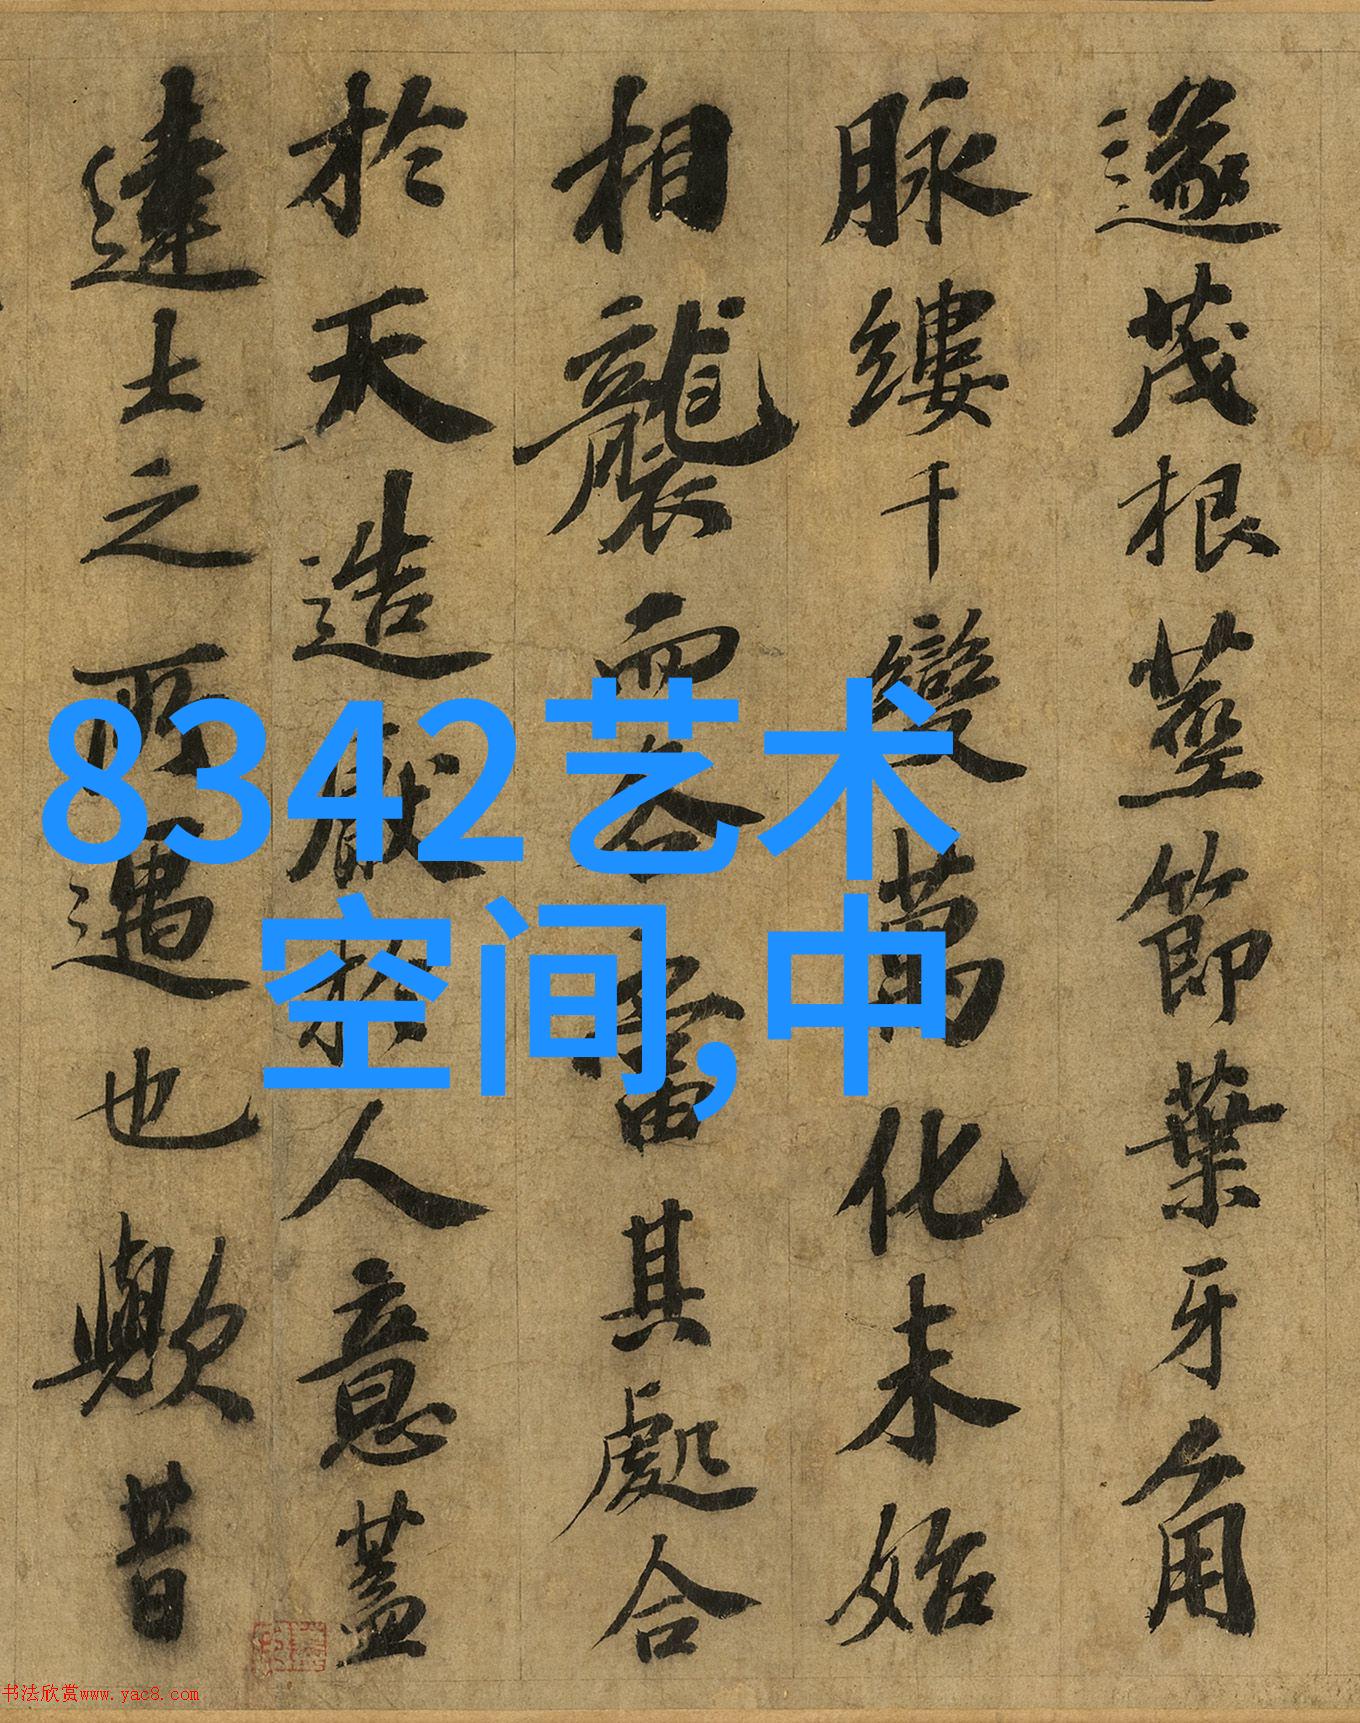 遂茂根莖節葉牙角
脉縷千變萬化未始
相襲而各當其處合
於天造厭於人意蓋
達士之所遇也歟昔
8342艺术
空间,中
书法欣赏www.yac8.com